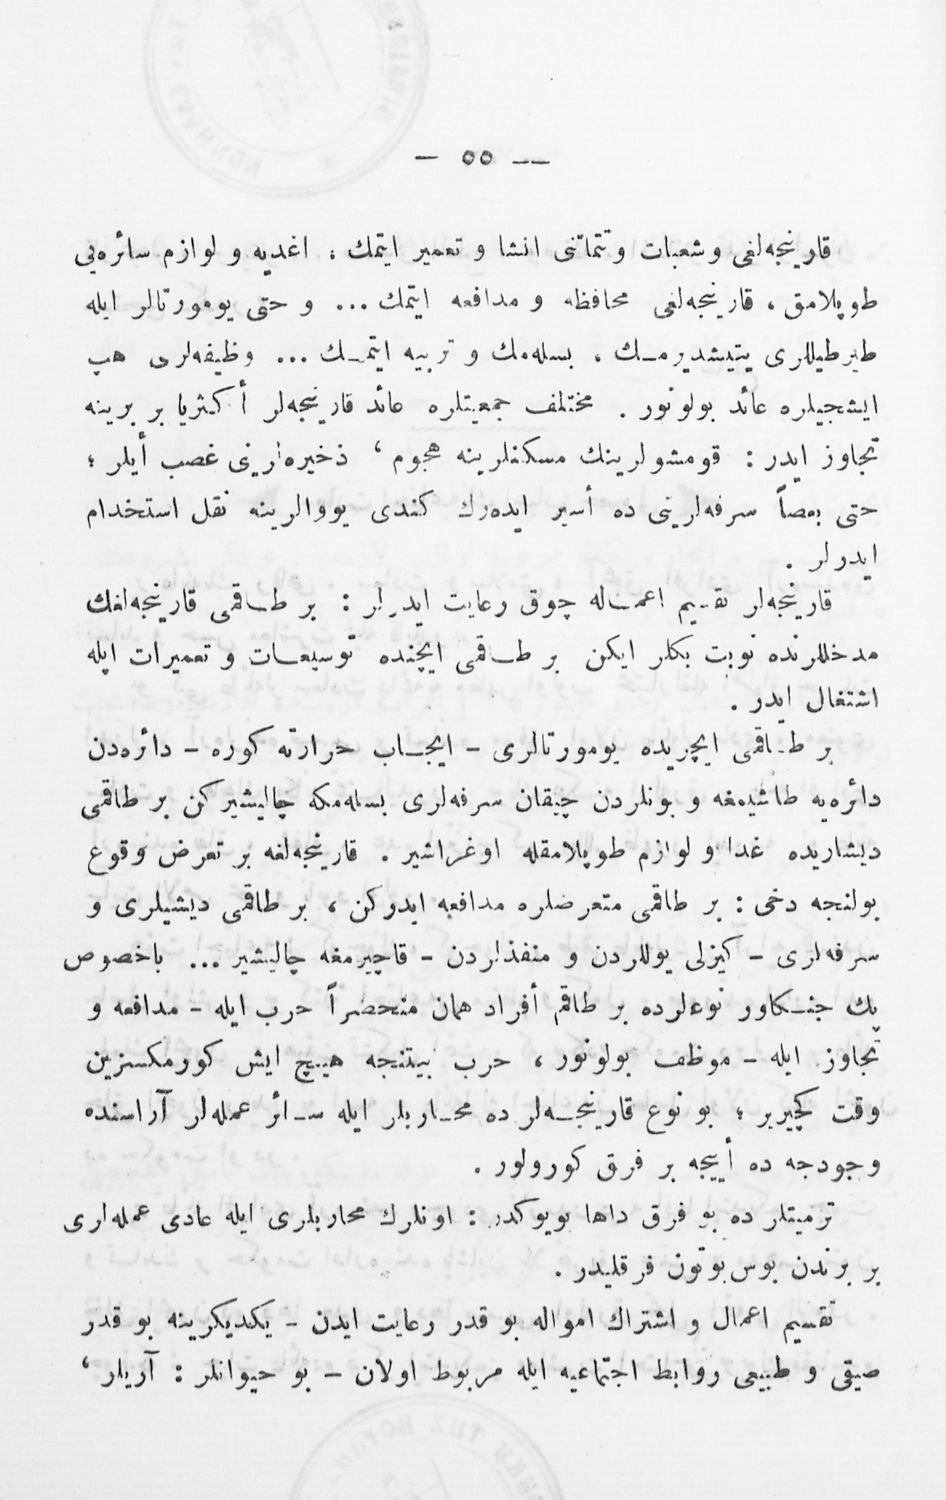 — ٥٥ —
قارینجه‌لغی وشعبات وتتماتنی انشا و تعمیر ایتمك ، اغدیه و لوازم سائره‌یی
طوپلامق ، قارینجه‌لغی محافظه و مدافعه ایتمك ... و حتی یومورتالر ایله
طیرطیللری یتیشدیرمك ، بسله‌مك و تربیه ایتمك ... وظیفه‌لری هپ
ایشجیلره عائد بولونور . مختلف جمعیتلره عائد قارینجه‌لر أكثریا بر برینه
تجاوز ایدر : قومشولرینك مسكنلرینه هجوم ، ذخیره‌لرینی غصب أیلر ؛
حتی بعضاً سرفه‌لرینی ده أسیر ایده‌رك كندی یووالرینه نقل استخدام
ایدرلر .
قارینجه‌لر تقسیم اعماله چوق رعایت ایدرلر : بر طاقمی قارینجه‌لغك
مدخللرنده نوبت بكلر ایكن بر طاقمی ایچنده توسیعات و تعمیرات ایله
اشتغال ایدر .
بر طاقمی ایچریده یومورتالری - ایجاب حرارته كوره - دائره‌دن
دائره‌یه طاشیمغه و بونلردن چیقان سرفه‌لری بسله‌مكه چالیشیركن بر طاقمی
دیشاریده غدا و لوازم طوپلامقله اوغراشیر . قارینجه‌لغه بر تعرض وقوع
بولنجه دخی : بر طاقمی متعرضلره مدافعه ایدركن ، بر طاقمی دیشیلری و
سرفه‌لری - كیزلی یوللردن و منفذلردن - قاچیرمغه چالیشیر ... باخصوص
پك جنكاور نوعلرده بر طاقم أفراد همان منحصراً حرب ایله - مدافعه و
تجاوز ایله - موظف بولونور ، حرب بیتنجه هیچ ایش كورمكسزین
وقت كچیریر ؛ بو نوع قارینجه‌لر ده محاربلر ایله سائر عمله‌لر آراسنده
وجودجه ده أییجه بر فرق كورولور .
ترمیتلر ده بو فرق داها بویوكدر : اونلرك محاربلری ایله عادی عمله‌لری
بر برندن بوس‌بوتون فرقلیدر .
تقسیم اعمال و اشتراك امواله بو قدر رعایت ایدن - یكدیكرینه بو قدر
صیقی و طبیعی روابط اجتماعیه ایله مربوط اولان - بو حیوانلر : آریلر ،